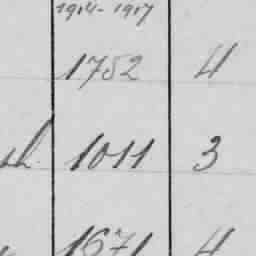 1914-1917
1752 4
1011 3
1671 4